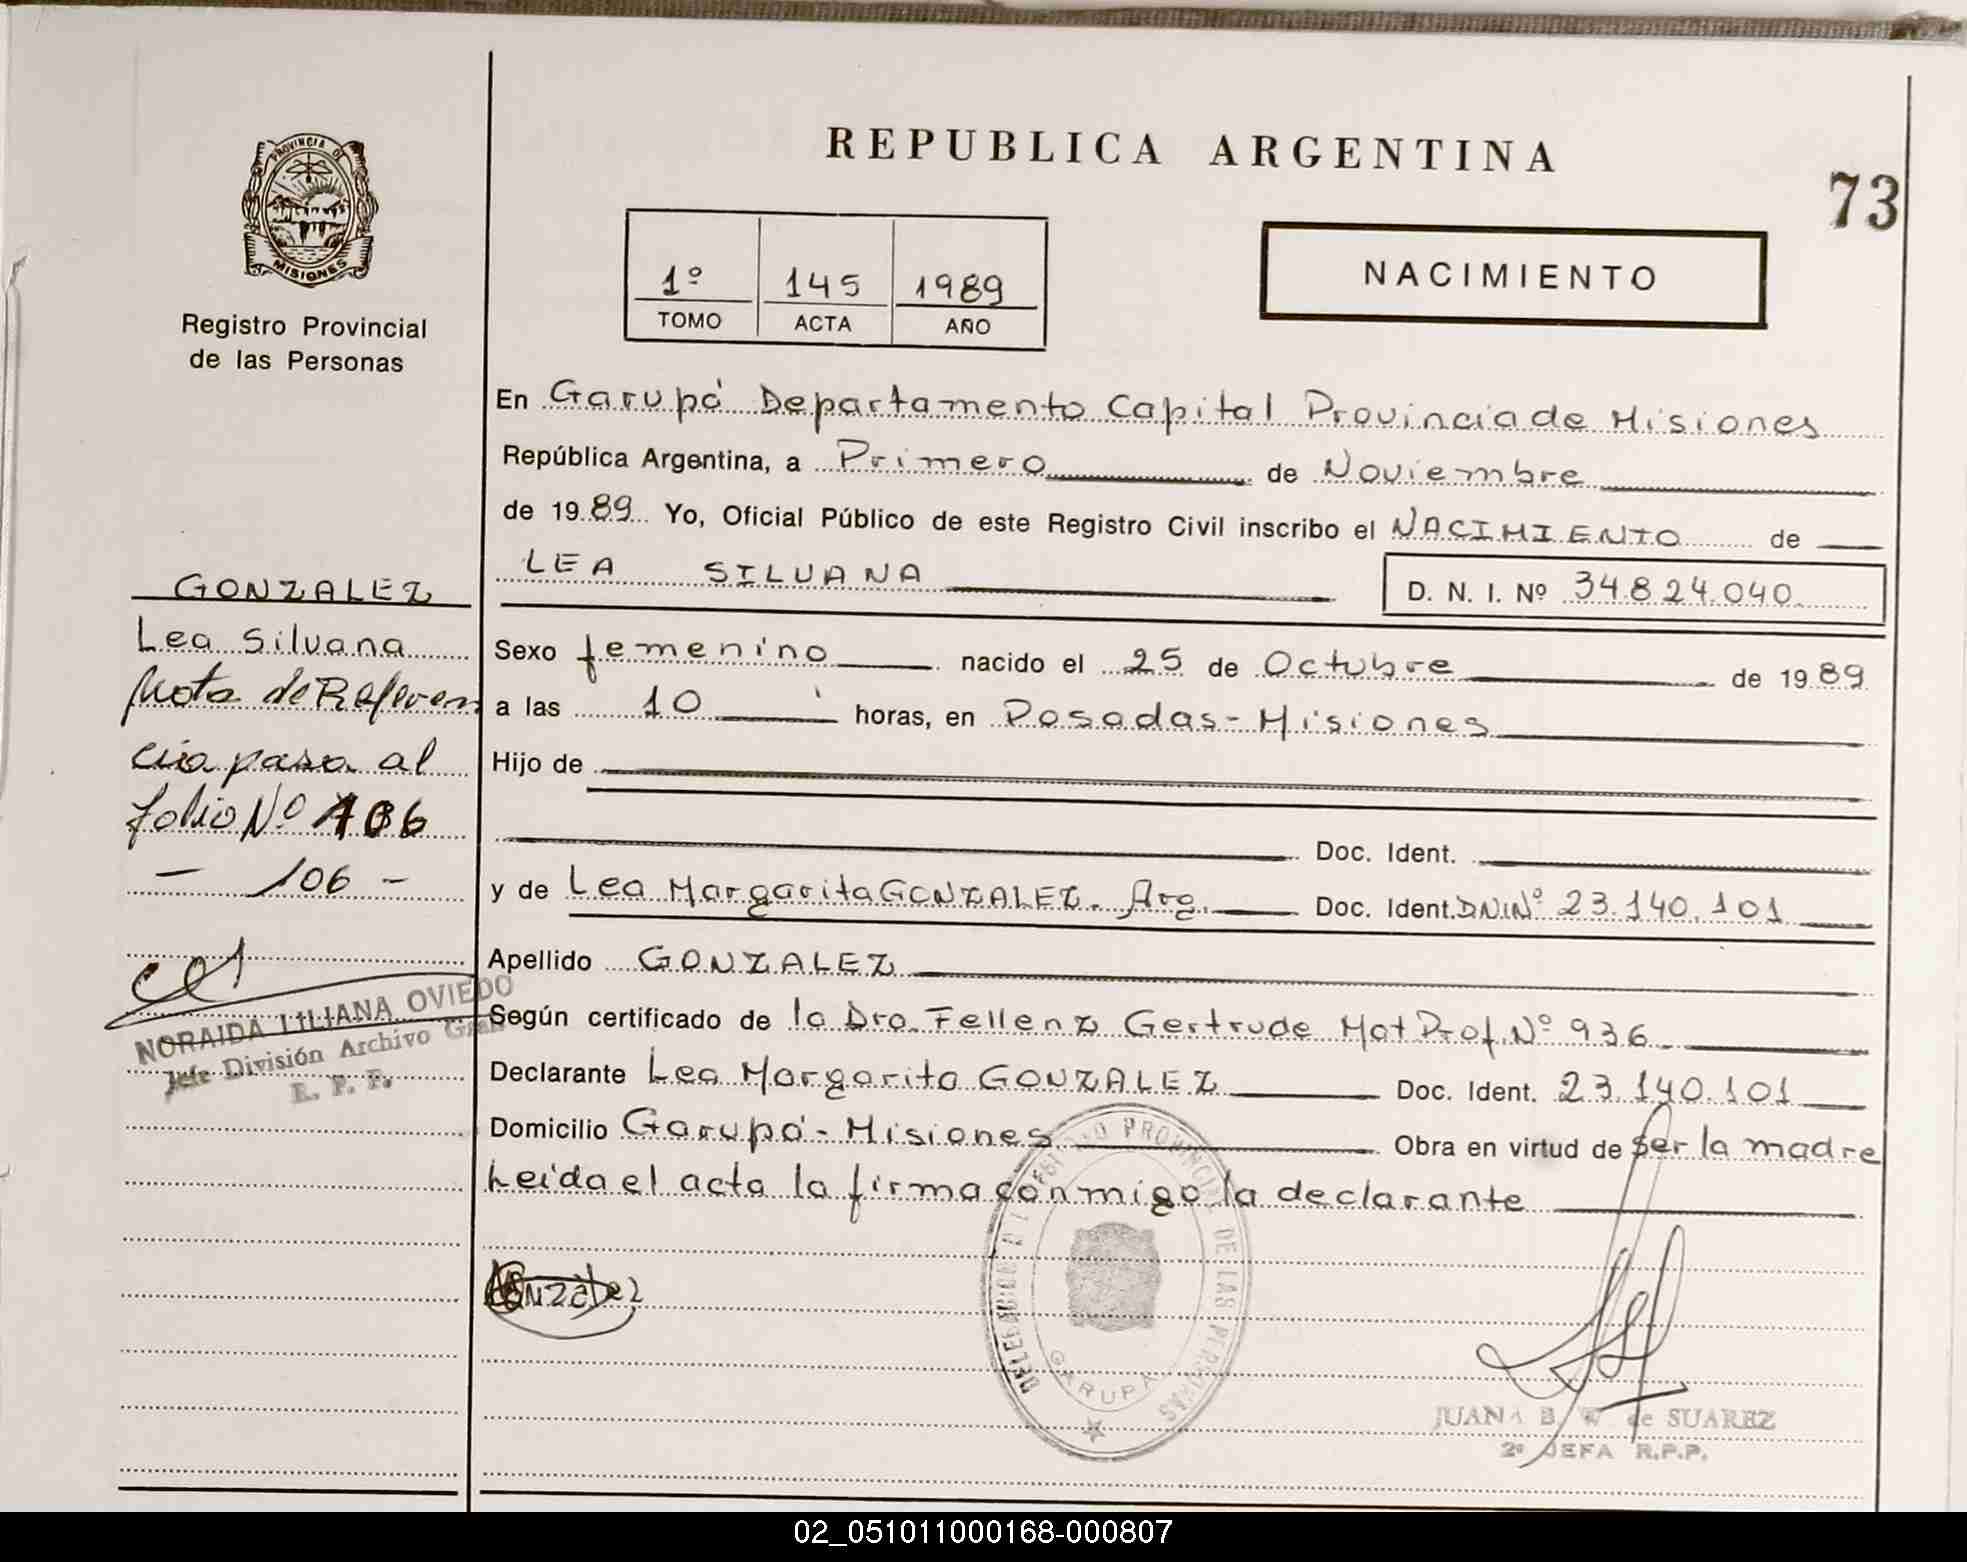 REPUBLICA ARGENTINA
73
PROVINCIA DE
MISIONES
Registro Provincial
de las Personas
1º 145 1989
TOMO ACTA AÑO
NACIMIENTO
En Garupá Departamento Capital Provincia de Misiones
República Argentina, a Primero de Noviembre
de 1989 Yo, Oficial Público de este Registro Civil inscribo el NACIMIENTO de
LEA SILVANA
D. N. I. Nº 34.824.040
Sexo femenino nacido el 25 de Octubre de 1989
a las 10 horas, en Posadas-Misiones
Hijo de
Doc. Ident.
y de Lea Margarita GONZALEZ. Arg. Doc. Ident. DNI Nº 23.140.101
Apellido GONZALEZ
Según certificado de la Dra. Fellenz Gertrude Mat Prof. Nº 936
Declarante Lea Margarita GONZALEZ Doc. Ident. 23.140.101
Domicilio Garupá-Misiones Obra en virtud de ser la madre
Leida el acta la firma conmigo la declarante
Gonzalez
DELEGACION REGISTRO PROVINCIAL DE LAS PERSONAS
GARUPA
JUANA B. W. de SUAREZ
2º JEFA R.P.P.
GONZALEZ
Lea Silvana
Nota de Referen
cia pasa al
folio Nº 106
- 106 -
NORAIDA LILIANA OVIEDO
Jefe División Archivo Gral
R. P. P.
02_051011000168-000807